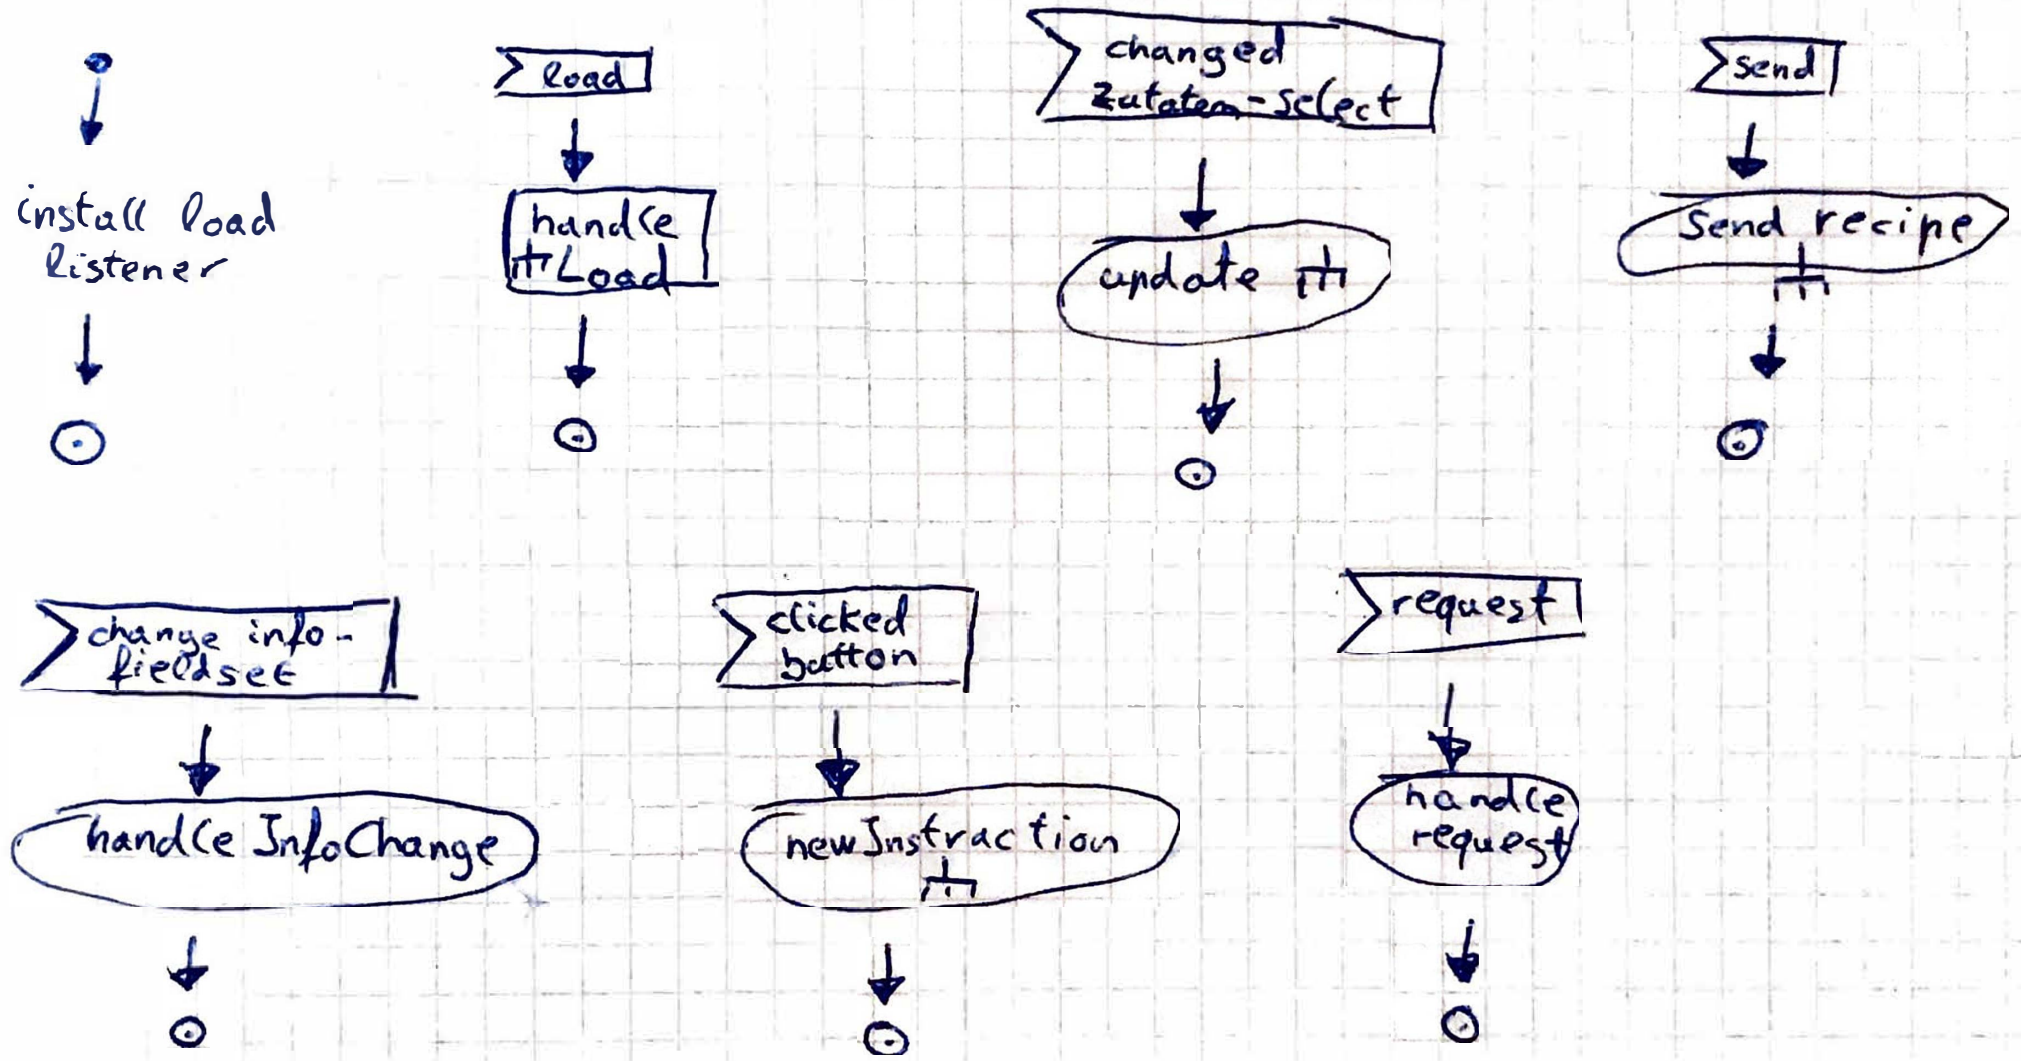 install load
listener
load
handle
Load
changed
Zutaten-select
update
send
send recipe
change info-
fieldset
handleInfoChange
clicked
button
newInstraction
request
handle
request